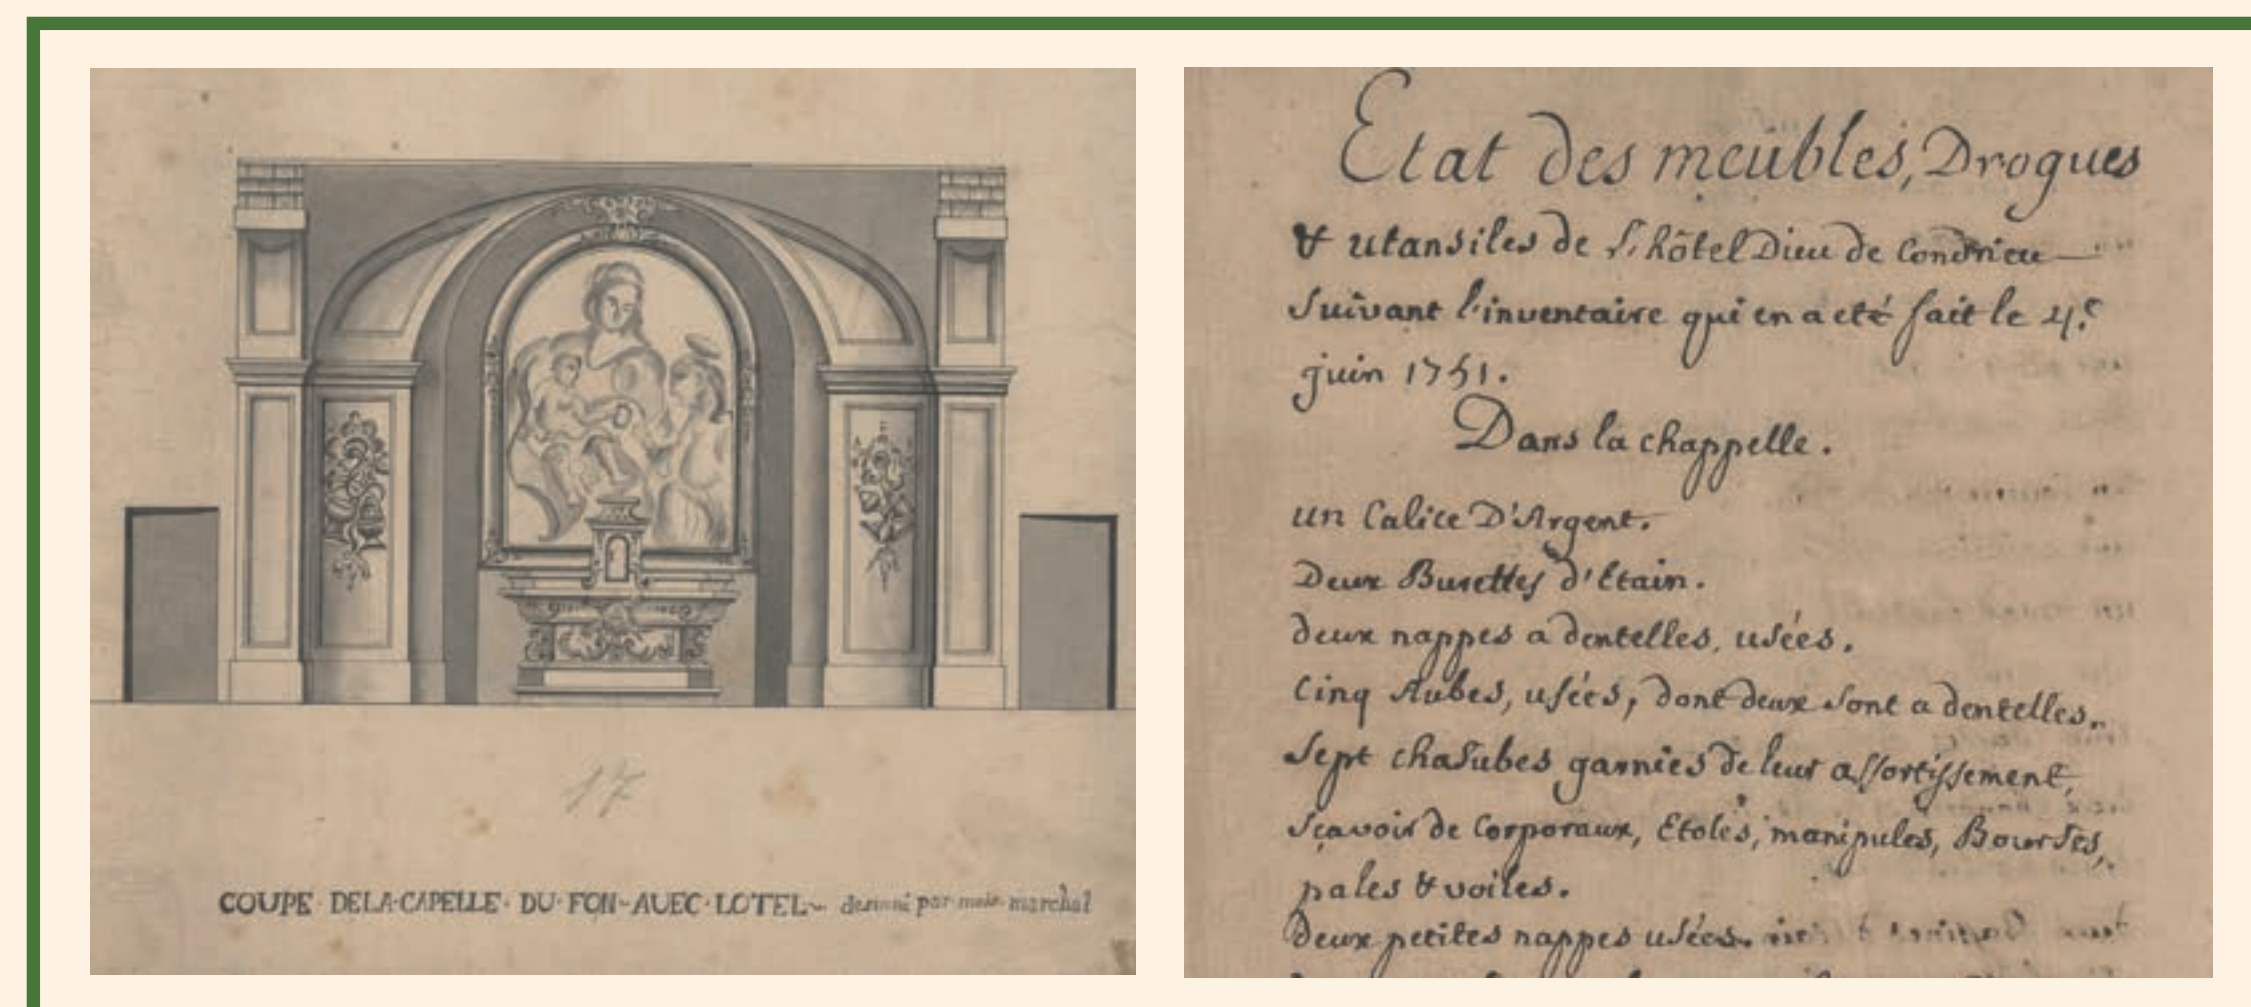 17
COUPE · DELA·CAPELLE · DU·FON~AUEC·LOTEL~ dessiné par mois marchal
Etat des meubles, Drogues
& utansiles de L'hôtel Dieu de Condrieu
Suivant l'inventaire qui en a eté fait le 4.e
juin 1751.
Dans la chappelle.
un Calice D'Argent.
Deux Burettes d'Etain.
deux nappes a dentelles, usées.
Cinq Aubes, usées, dont deux sont a dentelles.
Sept chasubes garnies de leur assortissement,
sçavoir de Corporaux, Etoles, manipules, Bourses,
pales & voiles.
Deux petites nappes usées.